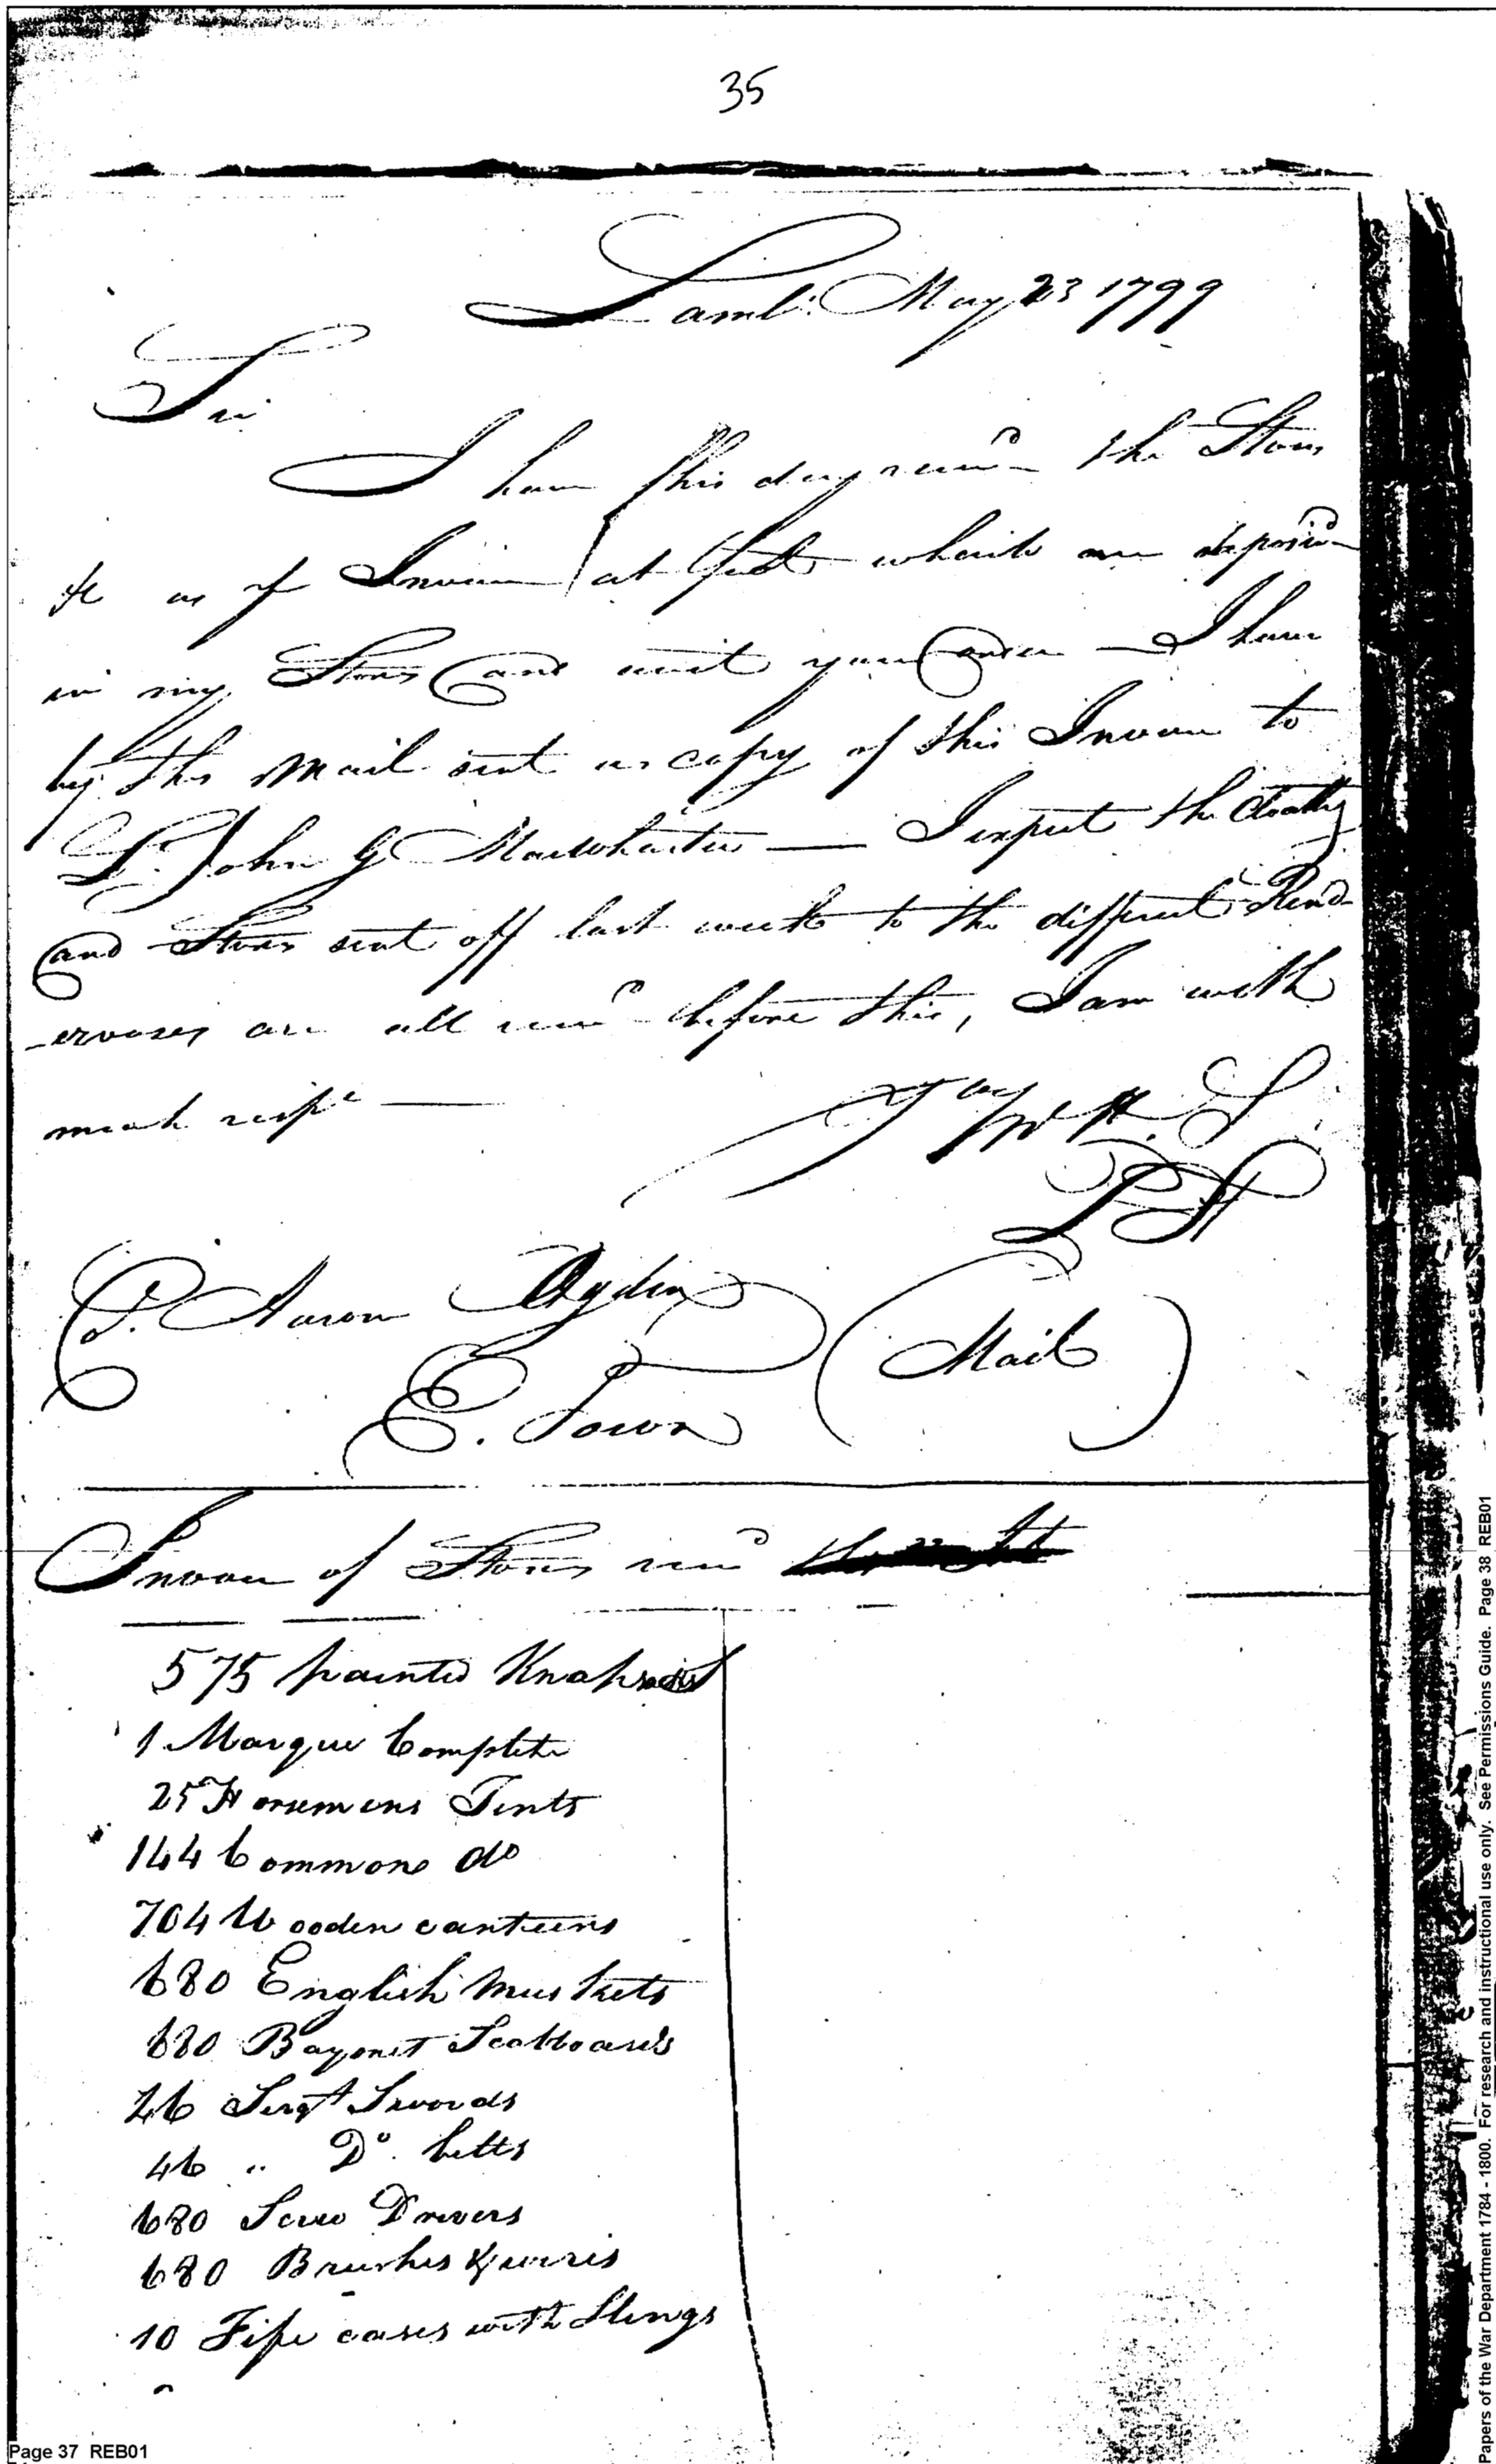 35
Lamb: May 23 1799
Sir
I have this day recd the Stores
&c as pr Invoice at foot which are deposid
in my Stores and wait your order — I have
by this Mail sent a copy of this Invoice to
Lt. John G MacWhorter — I expect the Cloathg
and Stores sent off last week to the different Rend-
-ezvouses are all recd before this, I am with
much respt —
H. S
Aaron Ogden
E. Town
(Mail)
Invoice of Stores recd
575 painted Knapsacks
1 Marque Complete
25 Horsemens Tents
144 Common do
704 Wooden canteens
680 English Muskets
680 Bayonet Scabboards
46 Sergt Swords
46 " Do. belts
680 Screw Drivers
680 Brushes & wires
10 Fife cases with Slings
Page 37 REB01
Papers of the War Department 1784 - 1800. For research and instructional use only. See Permissions Guide. Page 38 REB01